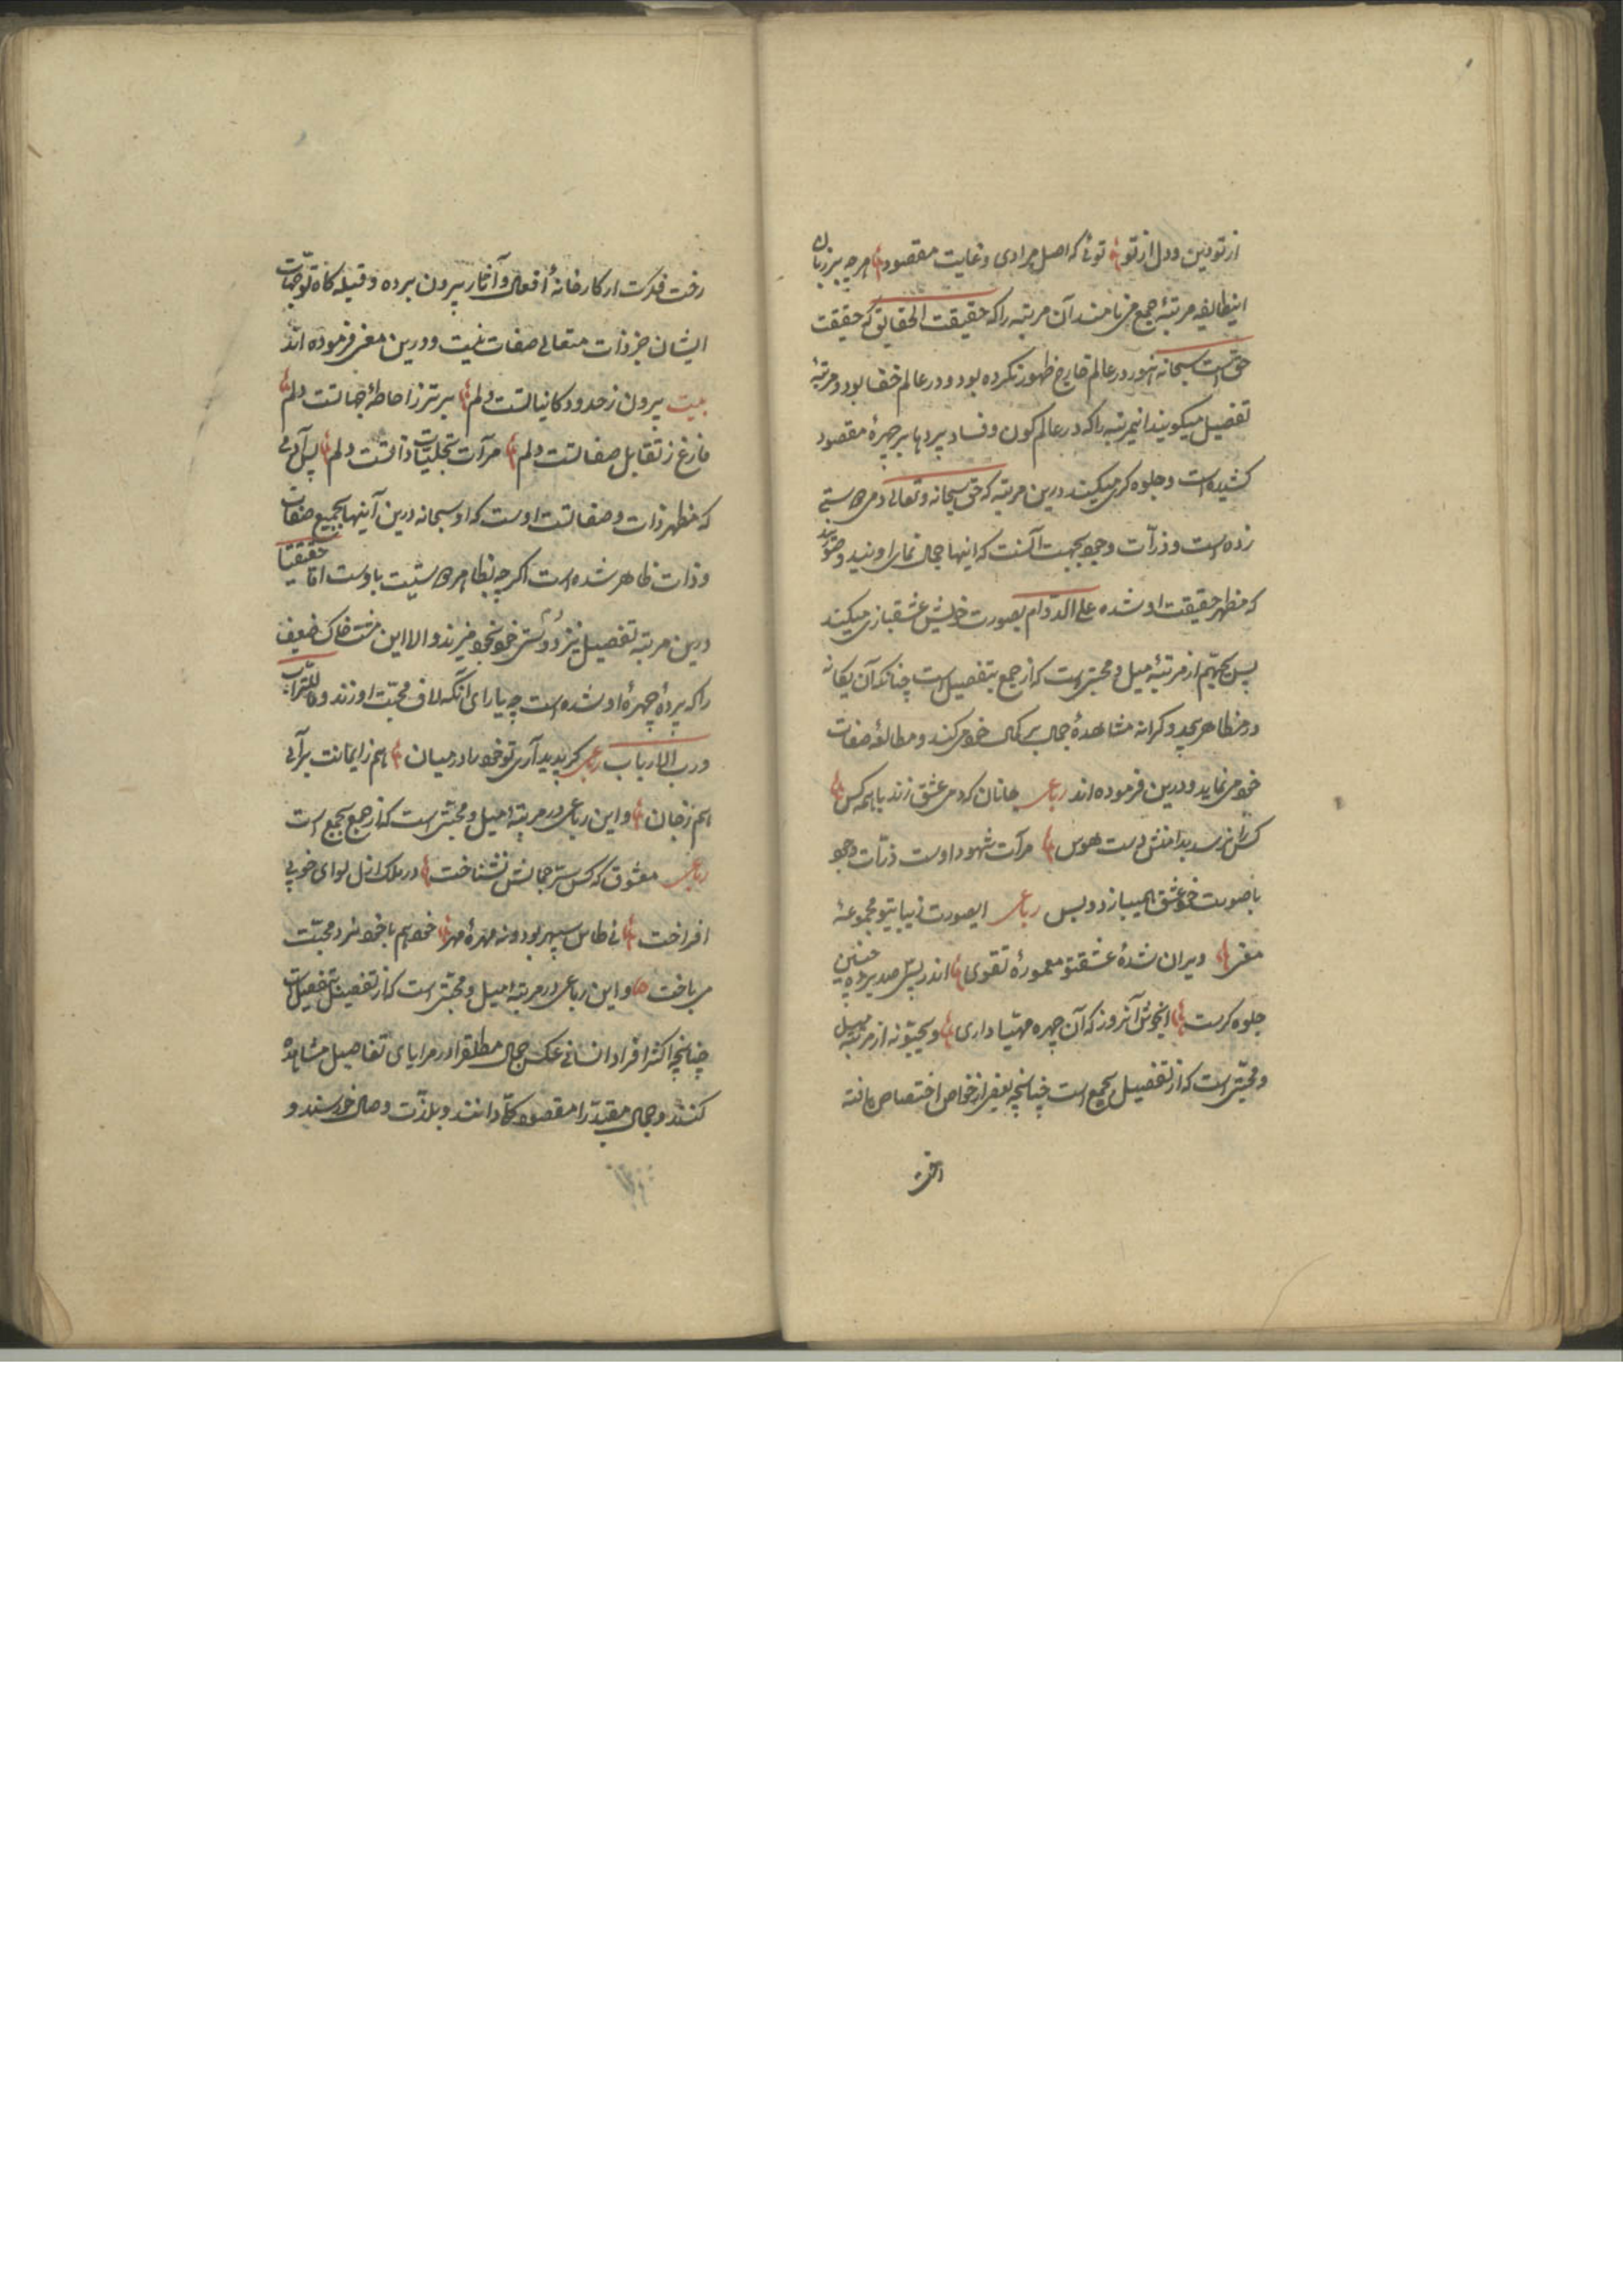 از تو دین و دل از تو توئی که اصل مرادی و غایت مقصود هرچه بر زبان
اینطایفه مرتبهٔ جمع می نامند آن مرتبه را که حقیقت الحقایق که حقیقت
حق است سبحانه هنوز در عالم خارج ظهور نکرده بود و در عالم خفا بود و مرتبهٔ
تفصیل میگویند اینمرتبه را که در عالم کون و فساد پردها بر چهرهٔ مقصود
کشیده است و جلوه گری میکند درین مرتبه که حق سبحانه و تعالی دم هستی
زده است و ذرآت وجود بجهت آنست که اینها جمال نمای اویند و صورتند
که مظهر حقیقت او شده علی الدوام بصورت خویش عشقبازی میکند
پس از مرتبهٔ میل و محبتی است که از جمع بتفصیل است چنانکه آن یگانه
در مظاهر بیحد و کرانه مشاهدهٔ جمال بر کمال خود می کند و مطالعهٔ صفات
خود می نماید و درین فرموده اند رباعی جانان که دم عشق زند با همه کس
کس را نرسد بدامنش دست هوس مرآت شهود اوست ذرّات وجود
با صورت خود عشق همیبازد و بس رباعی ایصورت زیبای تو مجموعهٔ
معنی ویران شدهٔ عشق تو معمورهٔ تقوی اندر پس صد پرده چنین
جلوه گریست ایخوش آنروز که آن چهره مهیّا داری از مرتبه میل
و محبتی است که از تفصیل بجمع است چنانچه بعضی از خواص اختصاص یافته
رخت
رخت فکرت از کارخانهٔ افعال و آثار بیرون برده و قبله گاه توجهات
ایشان جز ذات متعالی صفات نیست و درین معنی فرموده اند
بیت بیرون ز حدود کانیاتست دلم برتر ز احاطهٔ جهاتست دلم
فارغ ز تقابل صفاتست دلم مرآت تجلیّات ذاتست دلم پس آدمی
که مظهر ذات و صفاتست اوست که او سبحانه درین آینها بجمیع صفات
و ذات ظاهر شده است اگرچه بظاهر هستیت باوست امّا حقیقتا
درین مرتبه تفصیل نیز دوستی خود بخود میزند و الا این مشت خاک ضعیف
را که پردهٔ چهرهٔ او شده است چه یارای آنکه لاف محبّت او زند و ما للتراب
و رب الارباب رباعی گر پدید آری تو خود را در میان هم ز ایمانت برآئی
هم ز جان و این رباعی در مرتبهٔ میل و محبتی است که از جمع بجمع است
رباعی معشوق که کس سرّ جمالش نشناخت در ملک ازل لوای خوبی
افراخت نی طاس سپهر بود و نه مهرهٔ مهر خود هم با خود نرد محبّت
می باخت و این رباعی در مرتبهٔ میل و محبتی است که از تفصیل بتفصیل است
چنانچه اکثر افراد انسانی عکس جمال مطلق را در مرایای تفاصیل مشاهده
کنند و جمال مقیّد را مقصود کلّی دانند و بلذّت وصال خورسند و